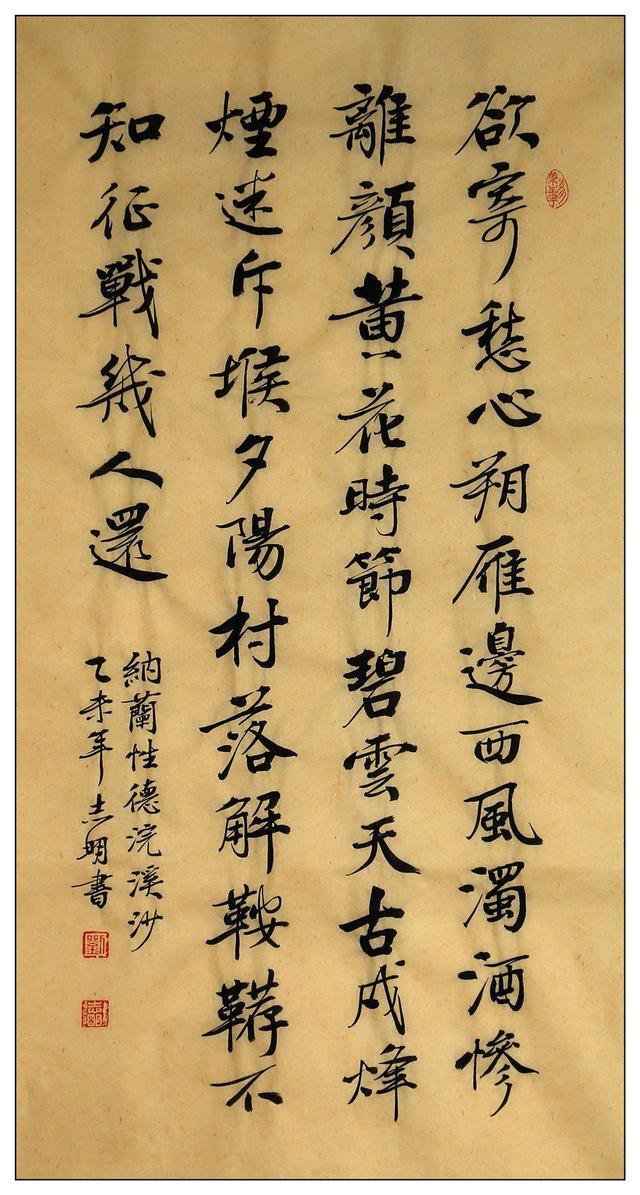 欲寄愁心朔雁邊西風濁酒慘
離顏黃花時節碧雲天古戍烽
煙迷斥堠夕陽村落解鞍韉不
知征戰幾人還
納蘭性德浣溪沙
乙未年志明書
劉